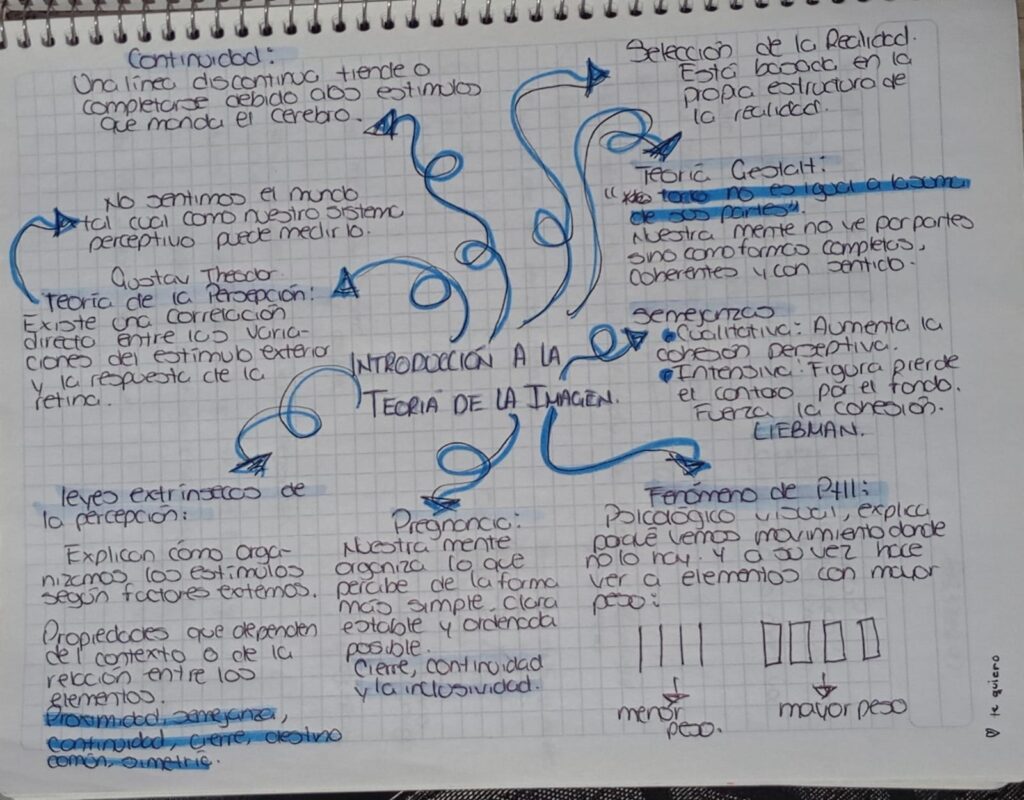 Continuidad:
Una línea discontinua tiende a
completarse debido a los estímulos
que manda el cerebro.
No sentimos el mundo
tal cual como nuestro sistema
perceptivo puede medirlo.
Gustav Theodor.
Teoría de la Persepción:
Existe una correlación
directa entre las varia-
ciones del estímulo exterior
y la respuesta de la
retina.
INTRODUCCIÓN A LA
TEORÍA DE LA IMAGEN.
Selección de la Realidad.
Está basada en la
propia estructura de
la realidad.
Teoría Gestalt:
todo no es igual a la suma
de sus partes".
Nuestra mente no ve por partes
sino como formas completas,
coherentes y con sentido.
Semejanzas
Cualitativa: Aumenta la
cohesión perceptiva.
Intensiva: Figura pierde
el contorno por el fondo.
Fuerza la cohesión.
LIEBMAN.
leyes extrínsecas de
la percepción:
Explican cómo orga-
nizamos los estímulos
según factores externos.
Propiedades que dependen
del contexto o de la
relación entre los
elementos.
Proximidad, semejanza,
continuidad, cierre, destino
común, simetría.
Pregnancia:
Nuestra mente
organiza lo que
percibe de la forma
más simple, clara
estable y ordenada
posible.
Cierre, continuidad
y la inclusividad.
Fenómeno de PHI:
Psicológico visual, explica
porqué vemos movimiento donde
no lo hay. Y a su vez hace
ver a elementos con mayor
peso:
menor
peso.
mayor peso
te quiero